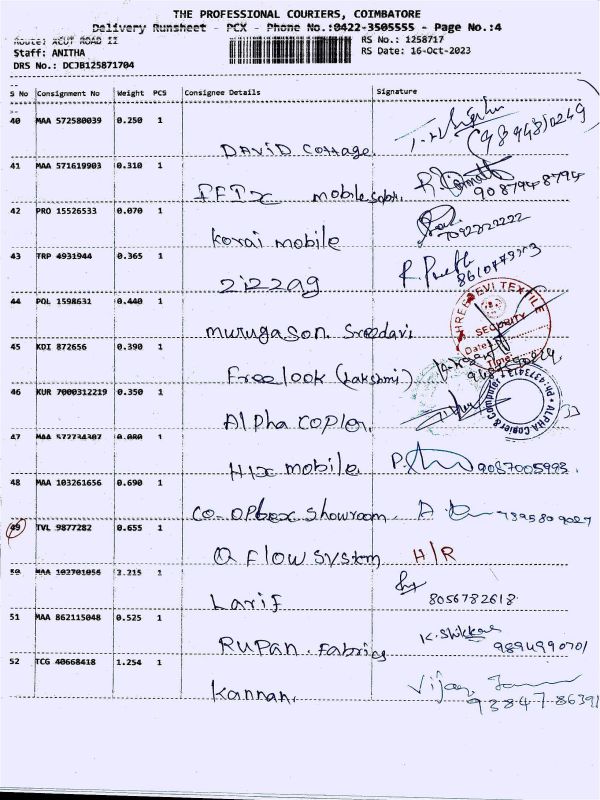 THE PROFESSIONAL COURIERS, COIMBATORE
Delivery Runsheet - PCX - Phone No.:0422-3505555 - Page No.:4
Route: ROAD II
RS No.: 1258717
Staff: ANITHA
RS Date: 16-Oct-2023
DRS No.: DCJB125871704
S No Consignment No Weight PCS Consignee Details Signature
40 MAA 572580039 0.250 1
DAVID Cottage.
41 MAA 571619903 0.310 1
mobile
9087948794
42 PRO 15526533 0.070 1
Korai mobile
7092222222
43 TRP 4931944 0.365 1
zizzag
44 POL 1598631 0.440 1
Murugason. Sreedavi
SHREEDEVI TEXTILE
SECURITY
Date
Time
45 KDI 872656 0.390 1
Freelook (Lakshmi)
46 KUR 7000312219 0.350 1
Alpha Copier.
47 MAA 572734307 0.080 1
Hix mobile
9087005993
48 MAA 103261656 0.690 1
showroom.
7395809027
49 TVL 9877282 0.655 1
Q Flow System H/R
50 MAA 102701056 1
Larif
8056782618
51 MAA 862115048 0.525 1
Rupan. Fabrics
9894990701
52 TCG 40668418 1.254 1
Kannan.
Vijay
9384786391